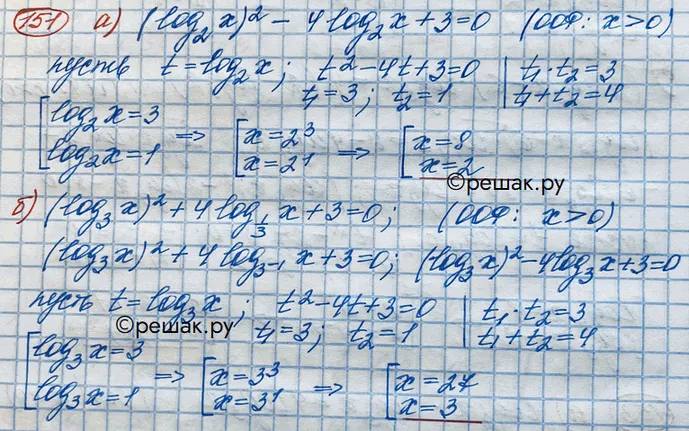 151 а) (log₂ x)² − 4 log₂ x + 3 = 0 (ООФ: x > 0)
пусть t = log₂ x; t² − 4t + 3 = 0 | t₁ · t₂ = 3
t₁ = 3; t₂ = 1 | t₁ + t₂ = 4
[ log₂ x = 3 ⇒ [ x = 2³ ⇒ [ x = 8
log₂ x = 1 x = 2¹ x = 2
©решак.ру
б) (log₃ x)² + 4 log_{1/3} x + 3 = 0; (ООФ: x > 0)
(log₃ x)² + 4 log_{3⁻¹} x + 3 = 0; (log₃ x)² − 4 log₃ x + 3 = 0
пусть t = log₃ x; t² − 4t + 3 = 0 | t₁ · t₂ = 3
©решак.ру t₁ = 3; t₂ = 1 | t₁ + t₂ = 4
[ log₃ x = 3 ⇒ [ x = 3³ ⇒ [ x = 27
log₃ x = 1 x = 3¹ x = 3